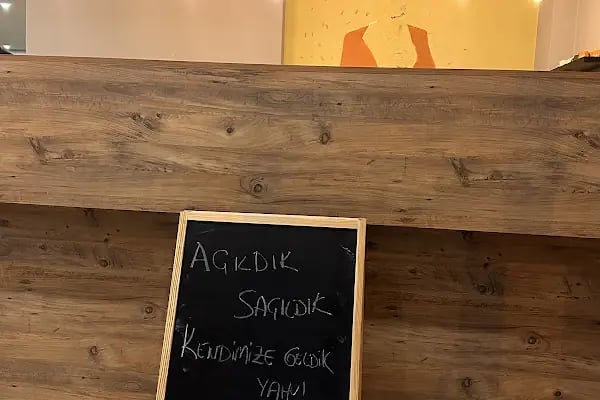 AGILDIK
SAGILDIK
KENDİMİZE GELDİK
YAHU